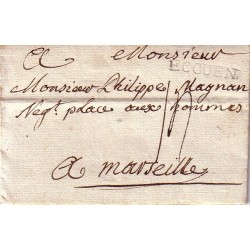 A Monsieur
ECOUEN
Monsieur Philippe Magnan
Negt. place aux hommes
A marseille